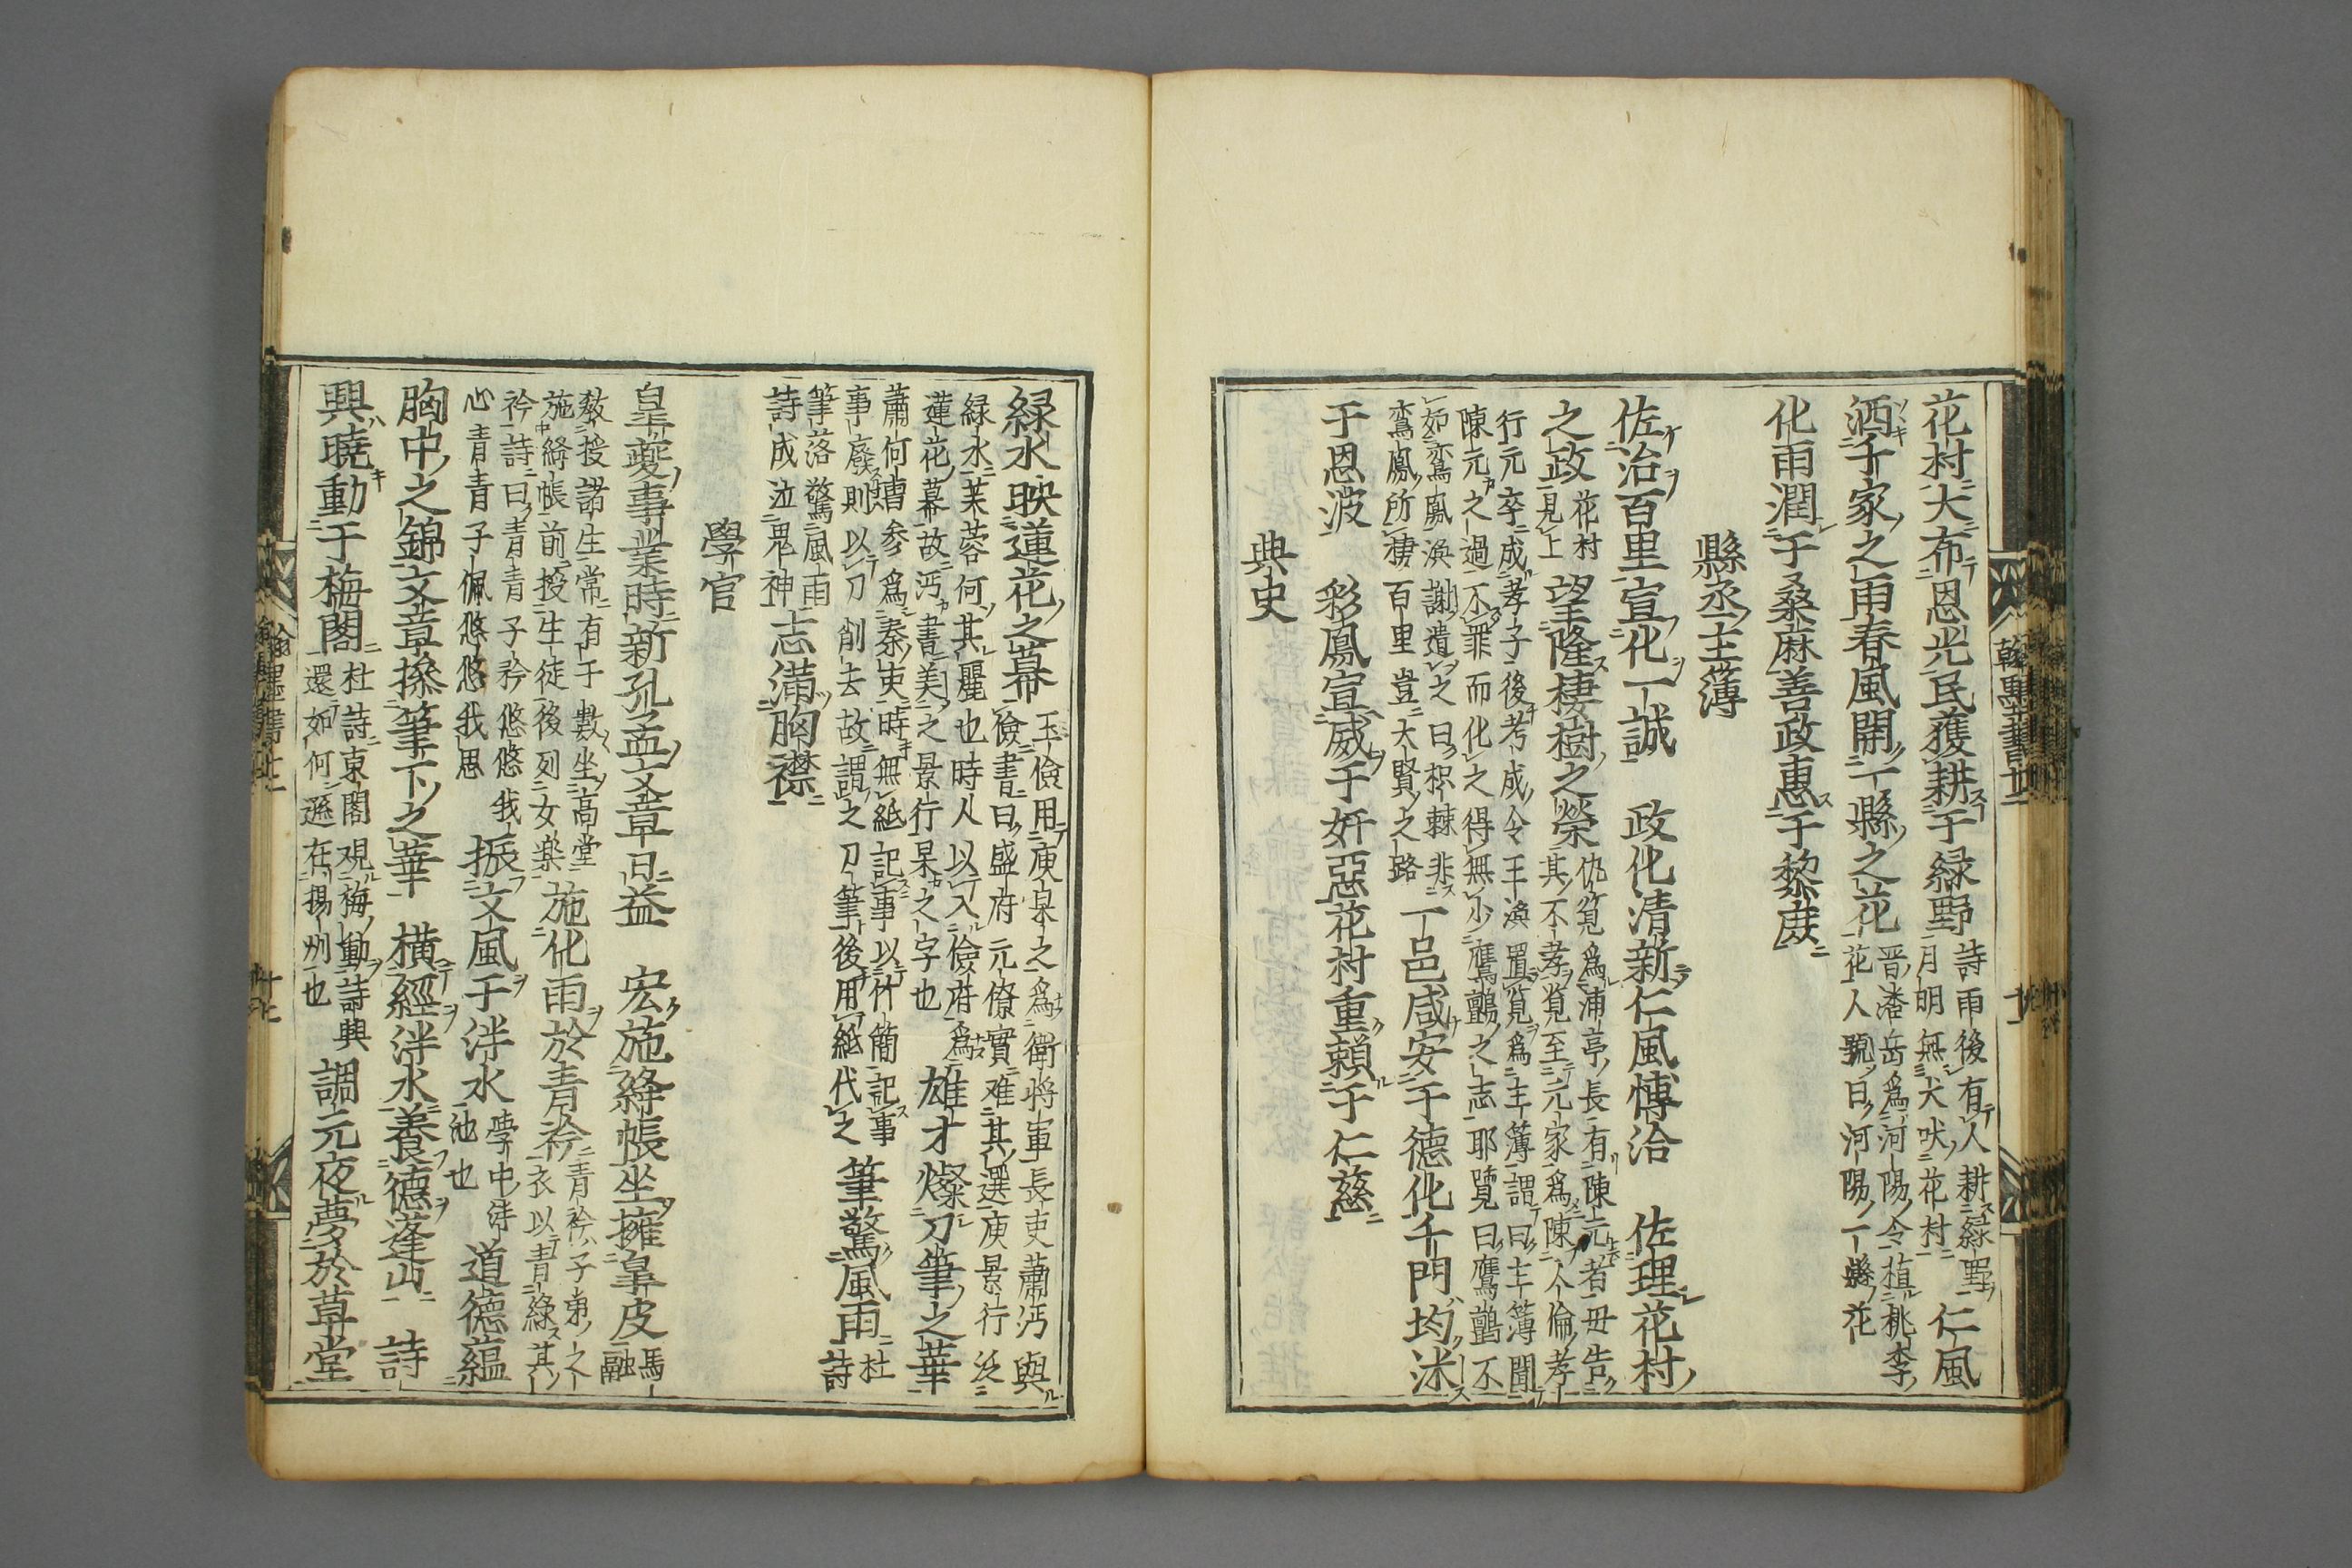 花村犬布恩光民獲耕于緑野詩雨後有人耕緑野月明無犬吠花村仁風
洒千家之雨春風開一縣之花晋潘岳為河陽令植桃李花人號曰河陽一縣花
化雨潤于桑麻善政惠于黎庶
縣丞主簿
佐治百里宣化一誠 政化清新仁風愽洽 佐理花村
之政花村見上望隆棲樹之榮仇覧爲浦亭長有陳元者母告其不孝覧至元家爲陳人倫孝
行元卒成孝子後考成令王渙置覧爲主簿謂曰主簿聞
陳元之過不罪而化之得無少鷹鸇之志耶覧曰鷹鸇不
如鸞鳳渙謝遣之曰枳棘非
鸞鳳所棲百里豈大賢之路一邑咸安于德化千門均沐
于恩波 彩鳳宣威于奸惡花村重頼于仁慈
典史
緑水映蓮花之幕王儉用庾杲之爲衛将軍長吏蕭沔與儉書曰盛府元僚實难其選庾景行泛
緑水芙蓉何其麗也時人以入儉府爲
蓮花幕故沔書美之景行杲之字也雄才燦刀筆之華
蕭何曹参爲秦吏時無紙記事以竹簡記事
事廢則以刀削去故謂之刀筆後用紙代之筆驚風雨杜詩
筆落驚風雨
詩成泣鬼神志満胸襟
學官
皐夔事業時新孔孟文章日益 宏施絳帳坐擁皐皮馬融
教授諸生常有于數坐高堂
施絳帳前授生徒後列女楽施化雨於青衿青衿子弟之衣以青緣其
衿詩曰青青子衿悠悠我
心青青子佩悠悠我思振文風于泮水學中泮池也道德蘊
胸中之錦文章掞筆下之華 横經泮水養德蓬山 詩
興曉動于梅閣杜詩東閣观梅動詩興還如何遜在揚州也調元夜夢於草堂